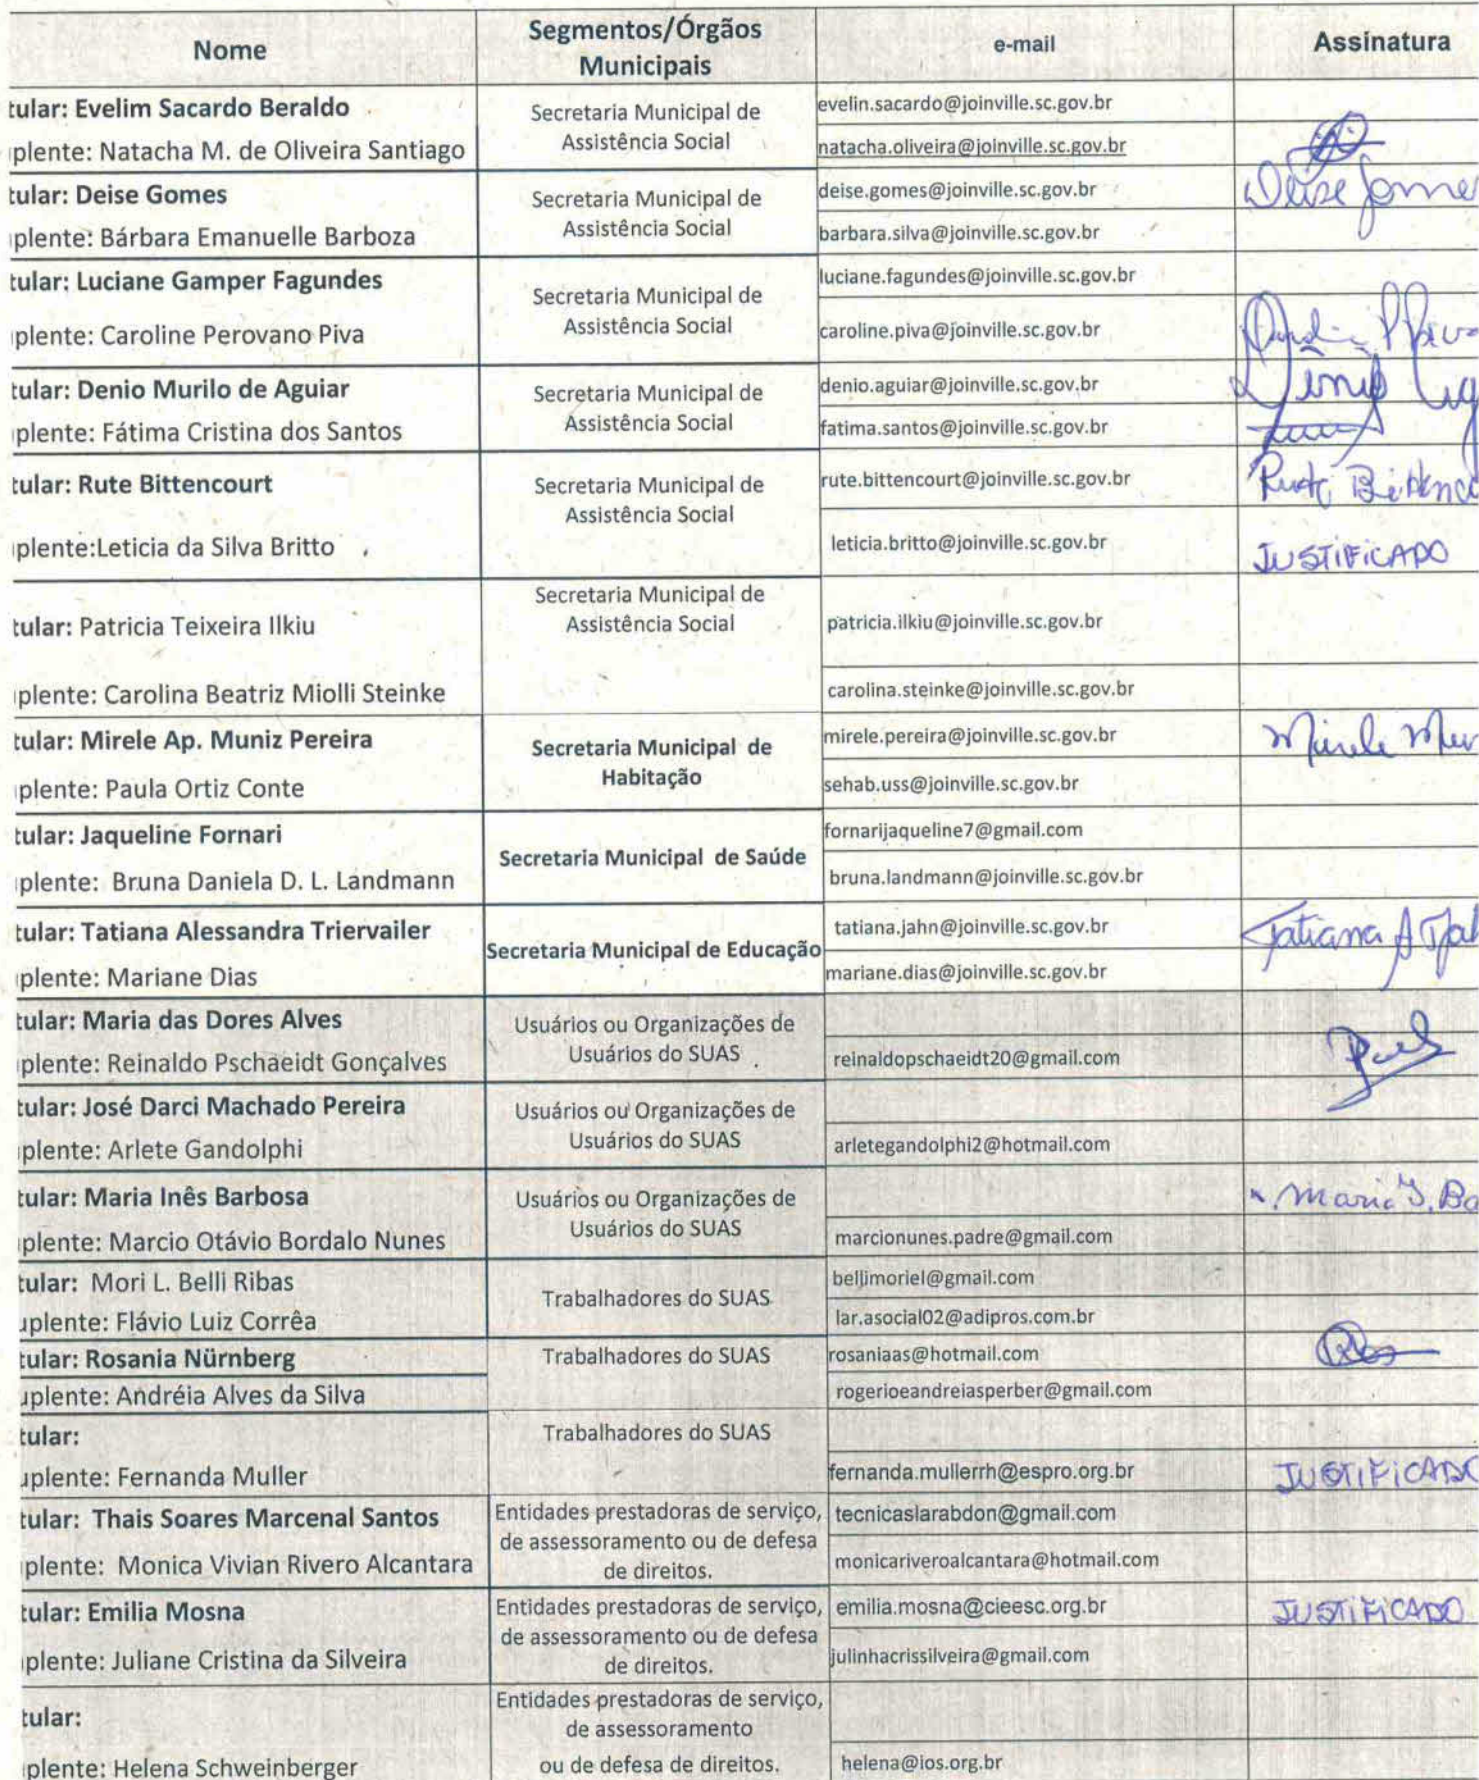 Nome Segmentos/Órgãos Municipais e-mail Assinatura
tular: Evelim Sacardo Beraldo Secretaria Municipal de Assistência Social evelin.sacardo@joinville.sc.gov.br
plente: Natacha M. de Oliveira Santiago natacha.oliveira@joinville.sc.gov.br
tular: Deise Gomes Secretaria Municipal de Assistência Social deise.gomes@joinville.sc.gov.br Deise Gome
plente: Bárbara Emanuelle Barboza barbara.silva@joinville.sc.gov.br
tular: Luciane Gamper Fagundes Secretaria Municipal de Assistência Social luciane.fagundes@joinville.sc.gov.br
plente: Caroline Perovano Piva caroline.piva@joinville.sc.gov.br
tular: Denio Murilo de Aguiar Secretaria Municipal de Assistência Social denio.aguiar@joinville.sc.gov.br
plente: Fátima Cristina dos Santos fatima.santos@joinville.sc.gov.br
tular: Rute Bittencourt Secretaria Municipal de Assistência Social rute.bittencourt@joinville.sc.gov.br Rute Bittenco
plente:Leticia da Silva Britto leticia.britto@joinville.sc.gov.br JUSTIFICADO
tular: Patricia Teixeira Ilkiu Secretaria Municipal de Assistência Social patricia.ilkiu@joinville.sc.gov.br
plente: Carolina Beatriz Miolli Steinke carolina.steinke@joinville.sc.gov.br
tular: Mirele Ap. Muniz Pereira Secretaria Municipal de Habitação mirele.pereira@joinville.sc.gov.br Mirele
plente: Paula Ortiz Conte sehab.uss@joinville.sc.gov.br
tular: Jaqueline Fornari Secretaria Municipal de Saúde fornarijaqueline7@gmail.com
plente: Bruna Daniela D. L. Landmann bruna.landmann@joinville.sc.gov.br
tular: Tatiana Alessandra Triervailer Secretaria Municipal de Educação tatiana.jahn@joinville.sc.gov.br Tatiana A Jah
plente: Mariane Dias mariane.dias@joinville.sc.gov.br
tular: Maria das Dores Alves Usuários ou Organizações de Usuários do SUAS
plente: Reinaldo Pschaeidt Gonçalves reinaldopschaeidt20@gmail.com
tular: José Darci Machado Pereira Usuários ou Organizações de Usuários do SUAS
plente: Arlete Gandolphi arletegandolphi2@hotmail.com
tular: Maria Inês Barbosa Usuários ou Organizações de Usuários do SUAS Maria I. Ba
plente: Marcio Otávio Bordalo Nunes marcionunes.padre@gmail.com
tular: Mori L. Belli Ribas Trabalhadores do SUAS bellimoriel@gmail.com
uplente: Flávio Luiz Corrêa lar.asocial02@adipros.com.br
tular: Rosania Nürnberg Trabalhadores do SUAS rosaniaas@hotmail.com
uplente: Andréia Alves da Silva rogerioeandreiasperber@gmail.com
tular: Trabalhadores do SUAS
uplente: Fernanda Muller fernanda.mullerrh@espro.org.br JUSTIFICADO
tular: Thais Soares Marcenal Santos Entidades prestadoras de serviço, de assessoramento ou de defesa de direitos. tecnicaslarabdon@gmail.com
plente: Monica Vivian Rivero Alcantara monicariveroalcantara@hotmail.com
tular: Emilia Mosna Entidades prestadoras de serviço, de assessoramento ou de defesa de direitos. emilia.mosna@cieesc.org.br JUSTIFICADO
plente: Juliane Cristina da Silveira julinhacrissilveira@gmail.com
tular: Entidades prestadoras de serviço, de assessoramento ou de defesa de direitos.
plente: Helena Schweinberger helena@ios.org.br